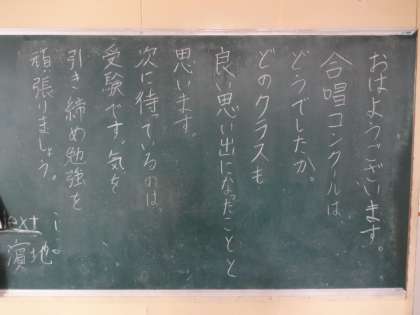 おはようございます。
合唱コンクールは、
どうでしたか。
どのクラスも
良い思い出になったことと
思います。
次に待っているのは、
受験です。気を
引き締め勉強を
頑張りましょう。